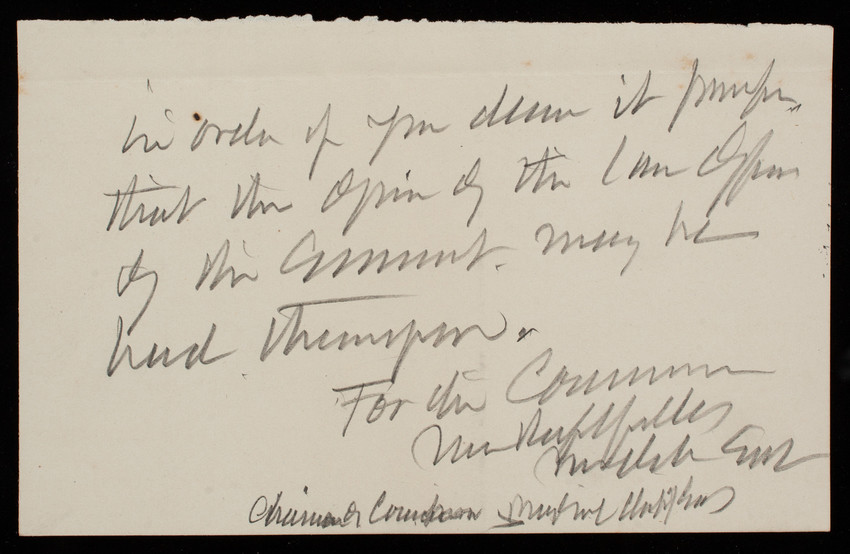 in order if you deem it proper
that the opin of the Law Officer
of the Government. may be
had thereupon.
For the Commission
Very Respectfully
Chairman of Commission